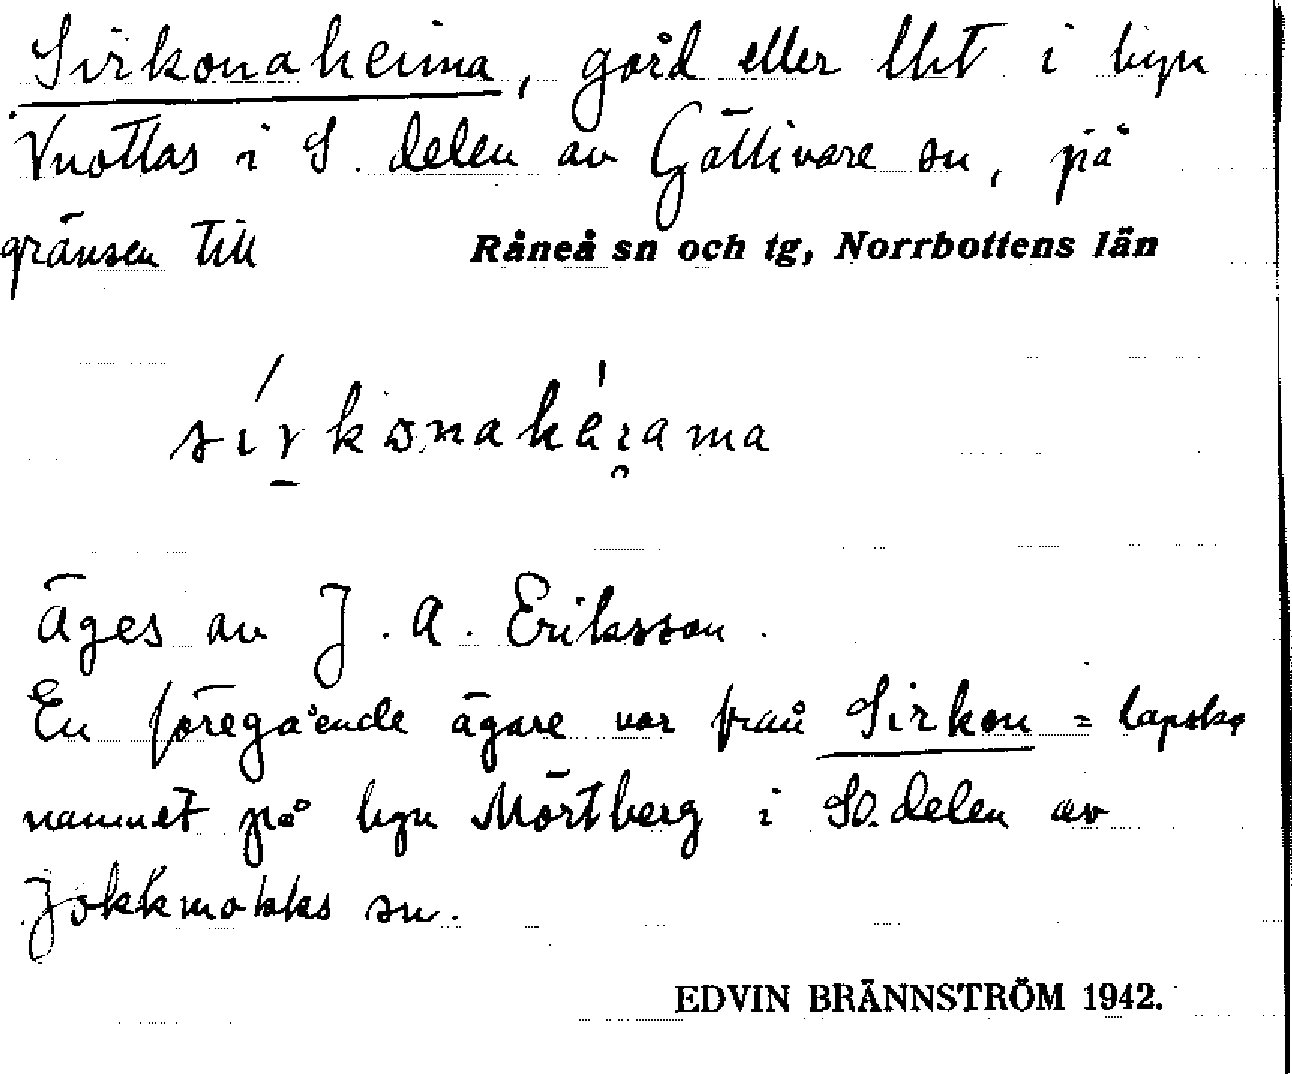 Sirkonaheima, gård eller lht i byn
Vuottas i S. delen av Gällivare sn, på
gränsen till Råneå sn och tg, Norrbottens län
äges av J. A. Eriksson.
En föregående ägare var från Sirkon = lapska
namnet på byn Mörtberg i SO. delen av
Jokkmokks sn.
EDVIN BRÄNNSTRÖM 1942.